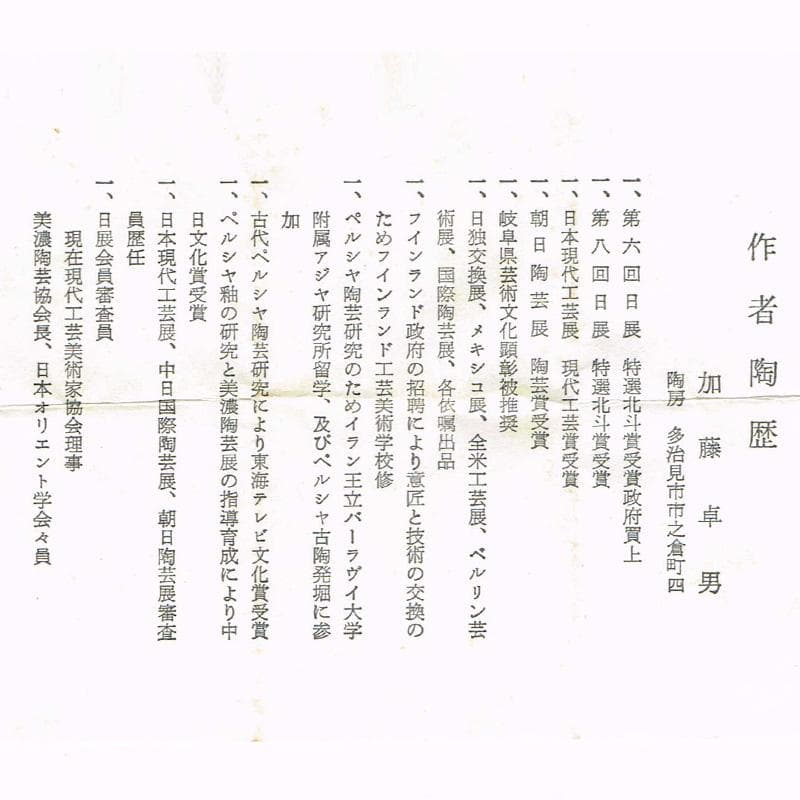 作者陶歴
加藤卓男
陶房 多治見市市之倉町四
一、第六回日展 特選北斗賞受賞政府買上
一、第八回日展 特選北斗賞受賞
一、日本現代工芸展 現代工芸賞受賞
一、朝日陶芸展 陶芸賞受賞
一、岐阜県芸術文化顕彰被推奨
一、日独交換展、メキシコ展、全米工芸展、ベルリン芸
術展、国際陶芸展、各依嘱出品
一、フインランド政府の招聘により意匠と技術の交換の
ためフインランド工芸美術学校修
一、ペルシヤ陶芸研究のためイラン王立パーラヴイ大学
附属アジヤ研究所留学、及びペルシヤ古陶発堀に参
加
一、古代ペルシヤ陶芸研究により東海テレビ文化賞受賞
一、ペルシヤ釉の研究と美濃陶芸展の指導育成により中
日文化賞受賞
一、日本現代工芸展、中日国際陶芸展、朝日陶芸展審査
員歴任
一、日展会員審査員
現在現代工芸美術家協会理事
美濃陶芸協会長、日本オリエント学会々員